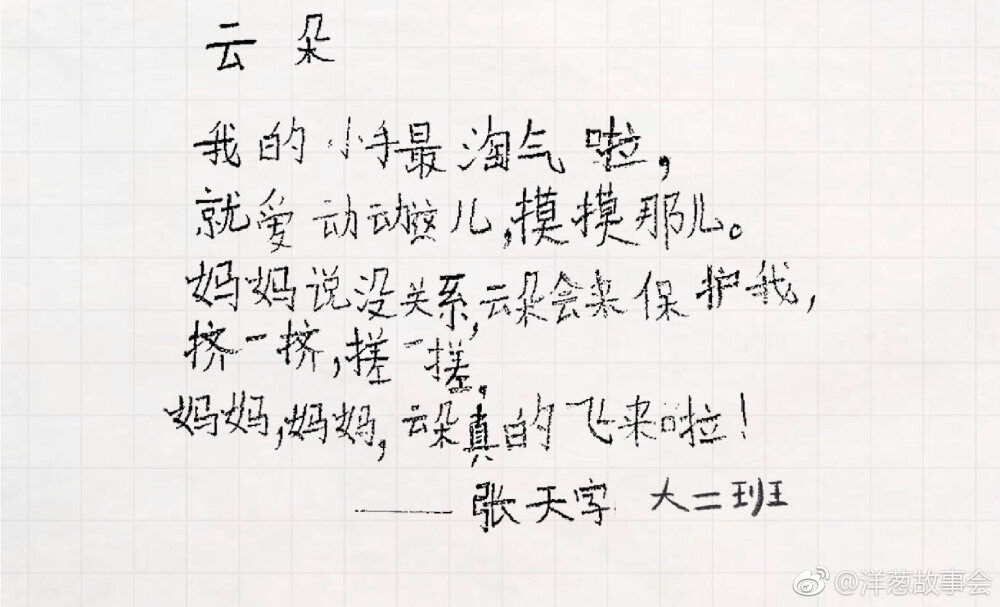 云朵
我的小手最淘气啦，
就爱动动这儿，摸摸那儿。
妈妈说没关系，云朵会来保护我，
挤一挤，搓一搓，
妈妈，妈妈，云朵真的飞来啦！
——張天字 大二班
@洋葱故事会